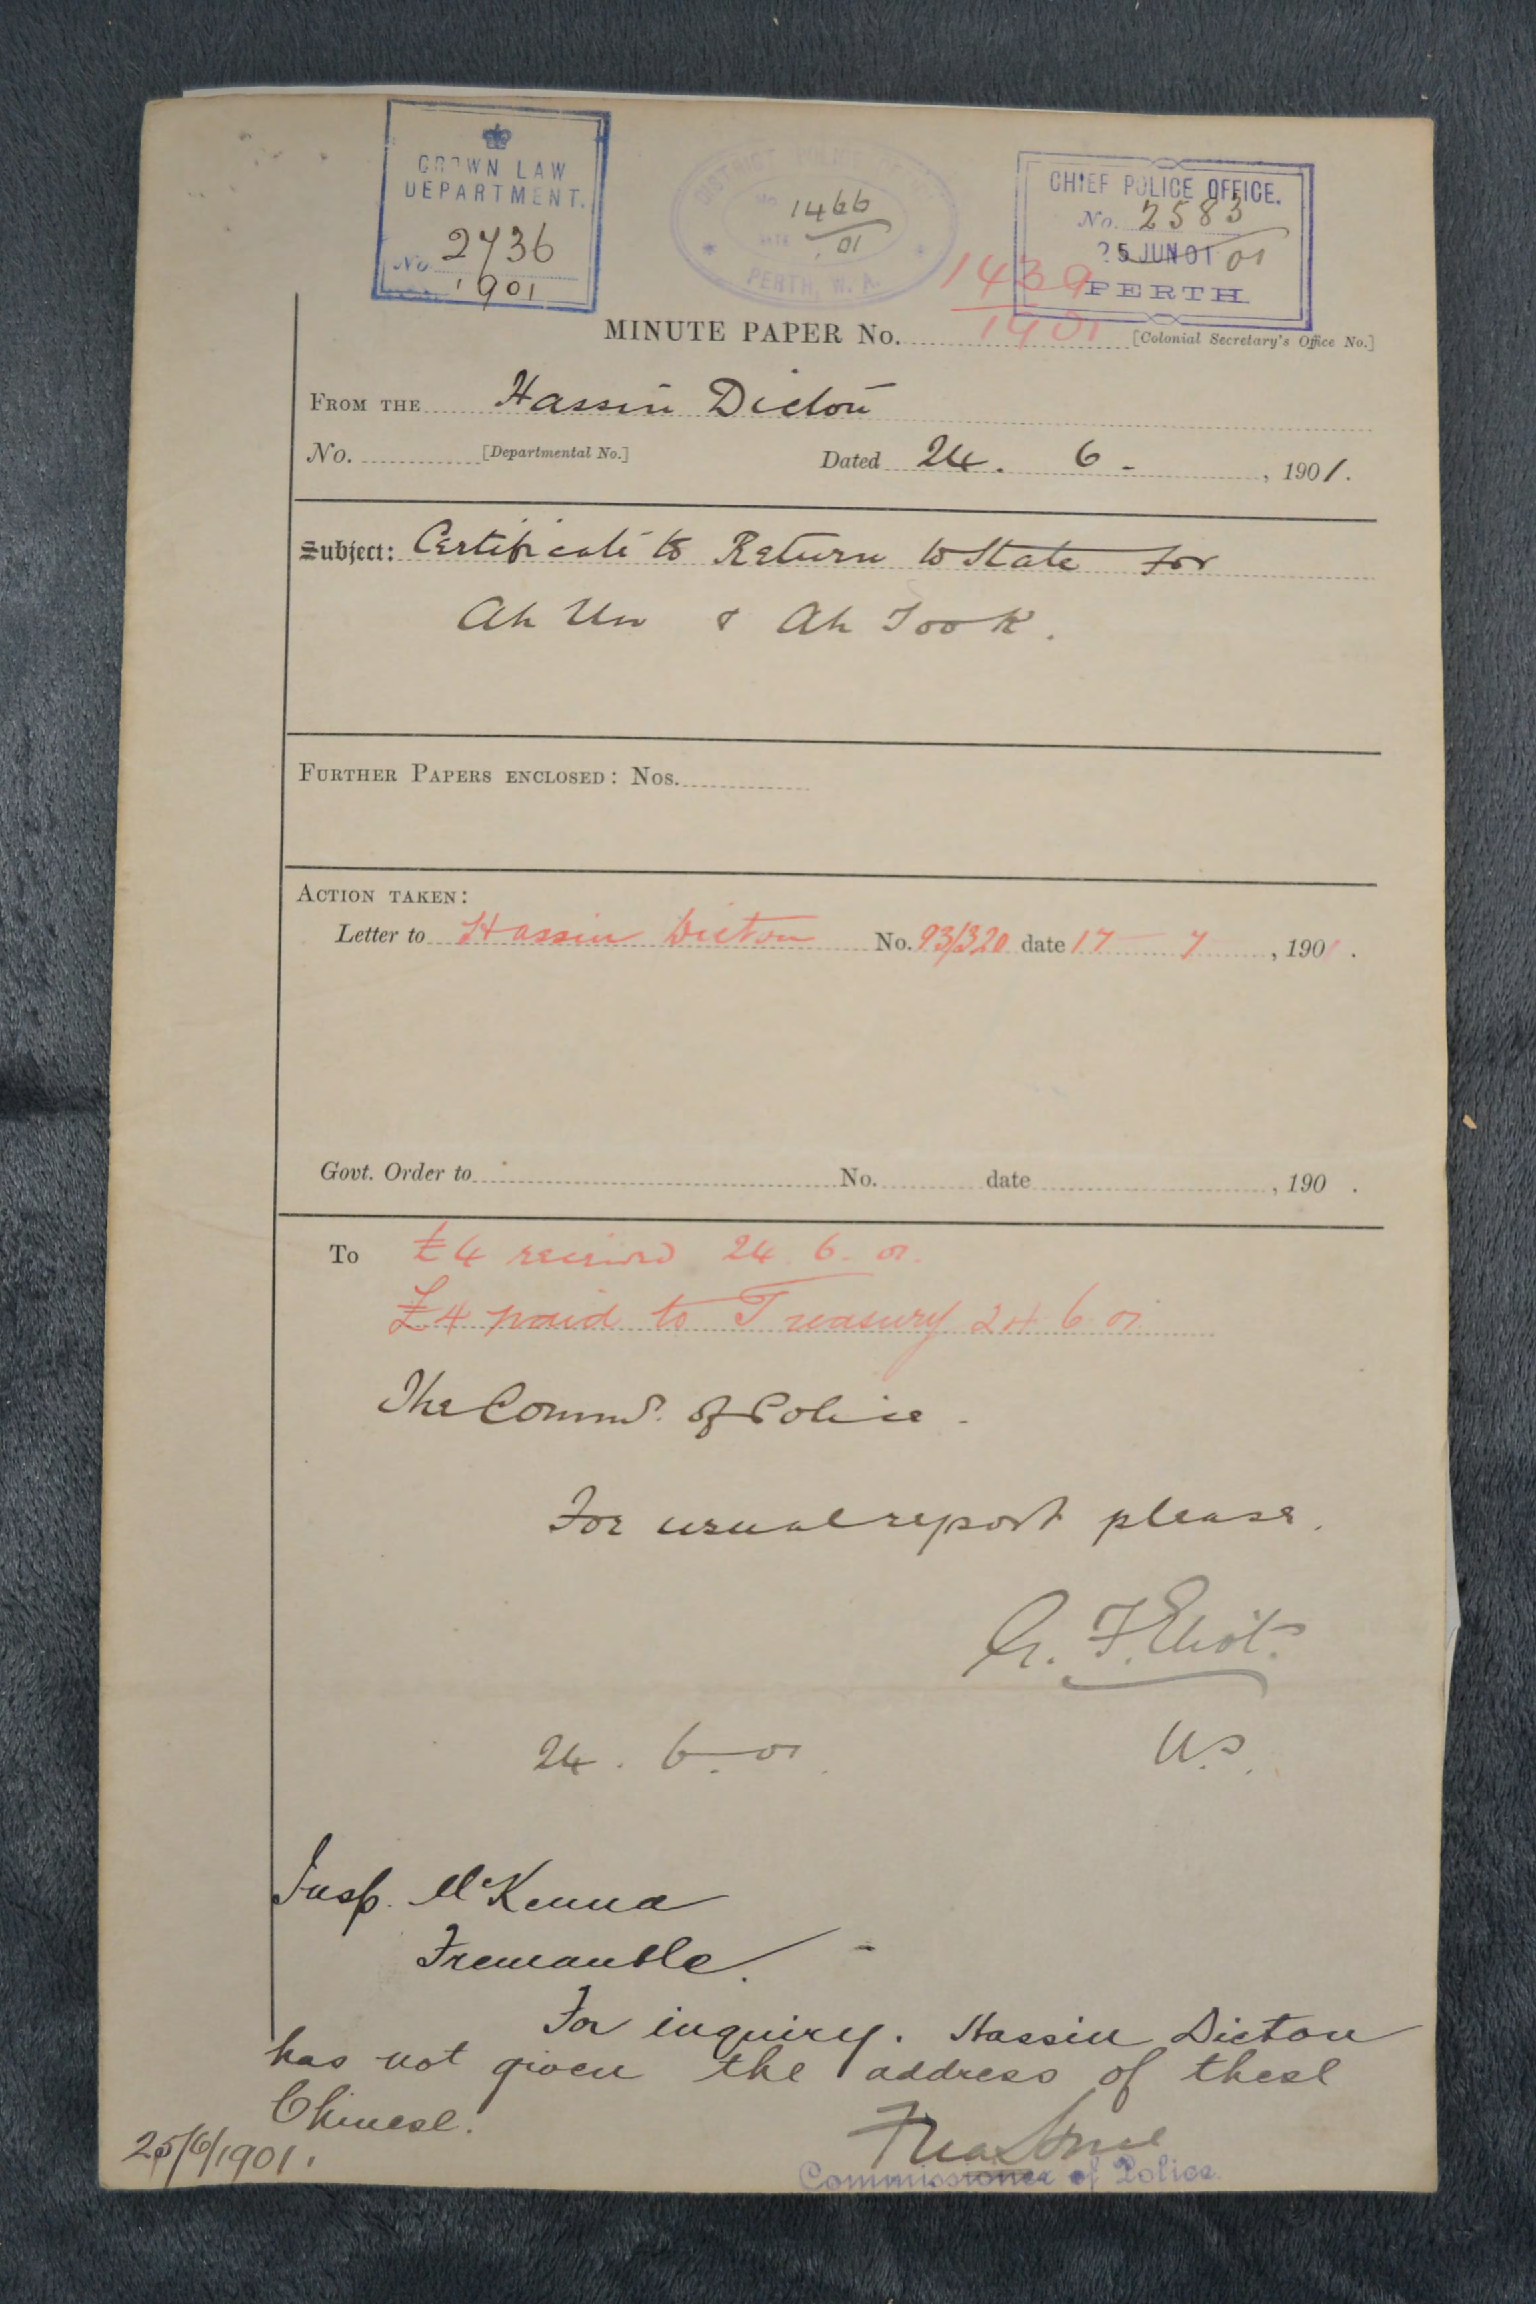 CROWN LAW
DEPARTMENT.
No. 2736
1901
DISTRICT POLICE
No. 1466
DATE .01
PERTH, W. A.
CHIEF POLICE OFFICE.
No. 2583
25 JUN 01 01
PERTH
1439
MINUTE PAPER No. 1901 [Colonial Secretary's Office No.]
FROM THE Hassin Dicton
No. [Departmental No.] Dated 24. 6 - , 1901.
Subject: Certificate to Return to State for
Ah Un & Ah Took.
FURTHER PAPERS ENCLOSED: Nos.
ACTION TAKEN:
Letter to Hassin Dicton No. 93/320 date 17 7 , 1901.
Govt. Order to No. date , 190 .
To £4 received 24. 6. 01.
£4 paid to Treasury 24 6 01
The Commr. of Police.
For usual report please.
G. F. Eliot.
24. 6. 01. U.S.
Insp. McKenna
Fremantle.
For inquiry. Hassin Dicton
has not given the address of these
Chinese.
25/6/1901.
Commissioner of Police.